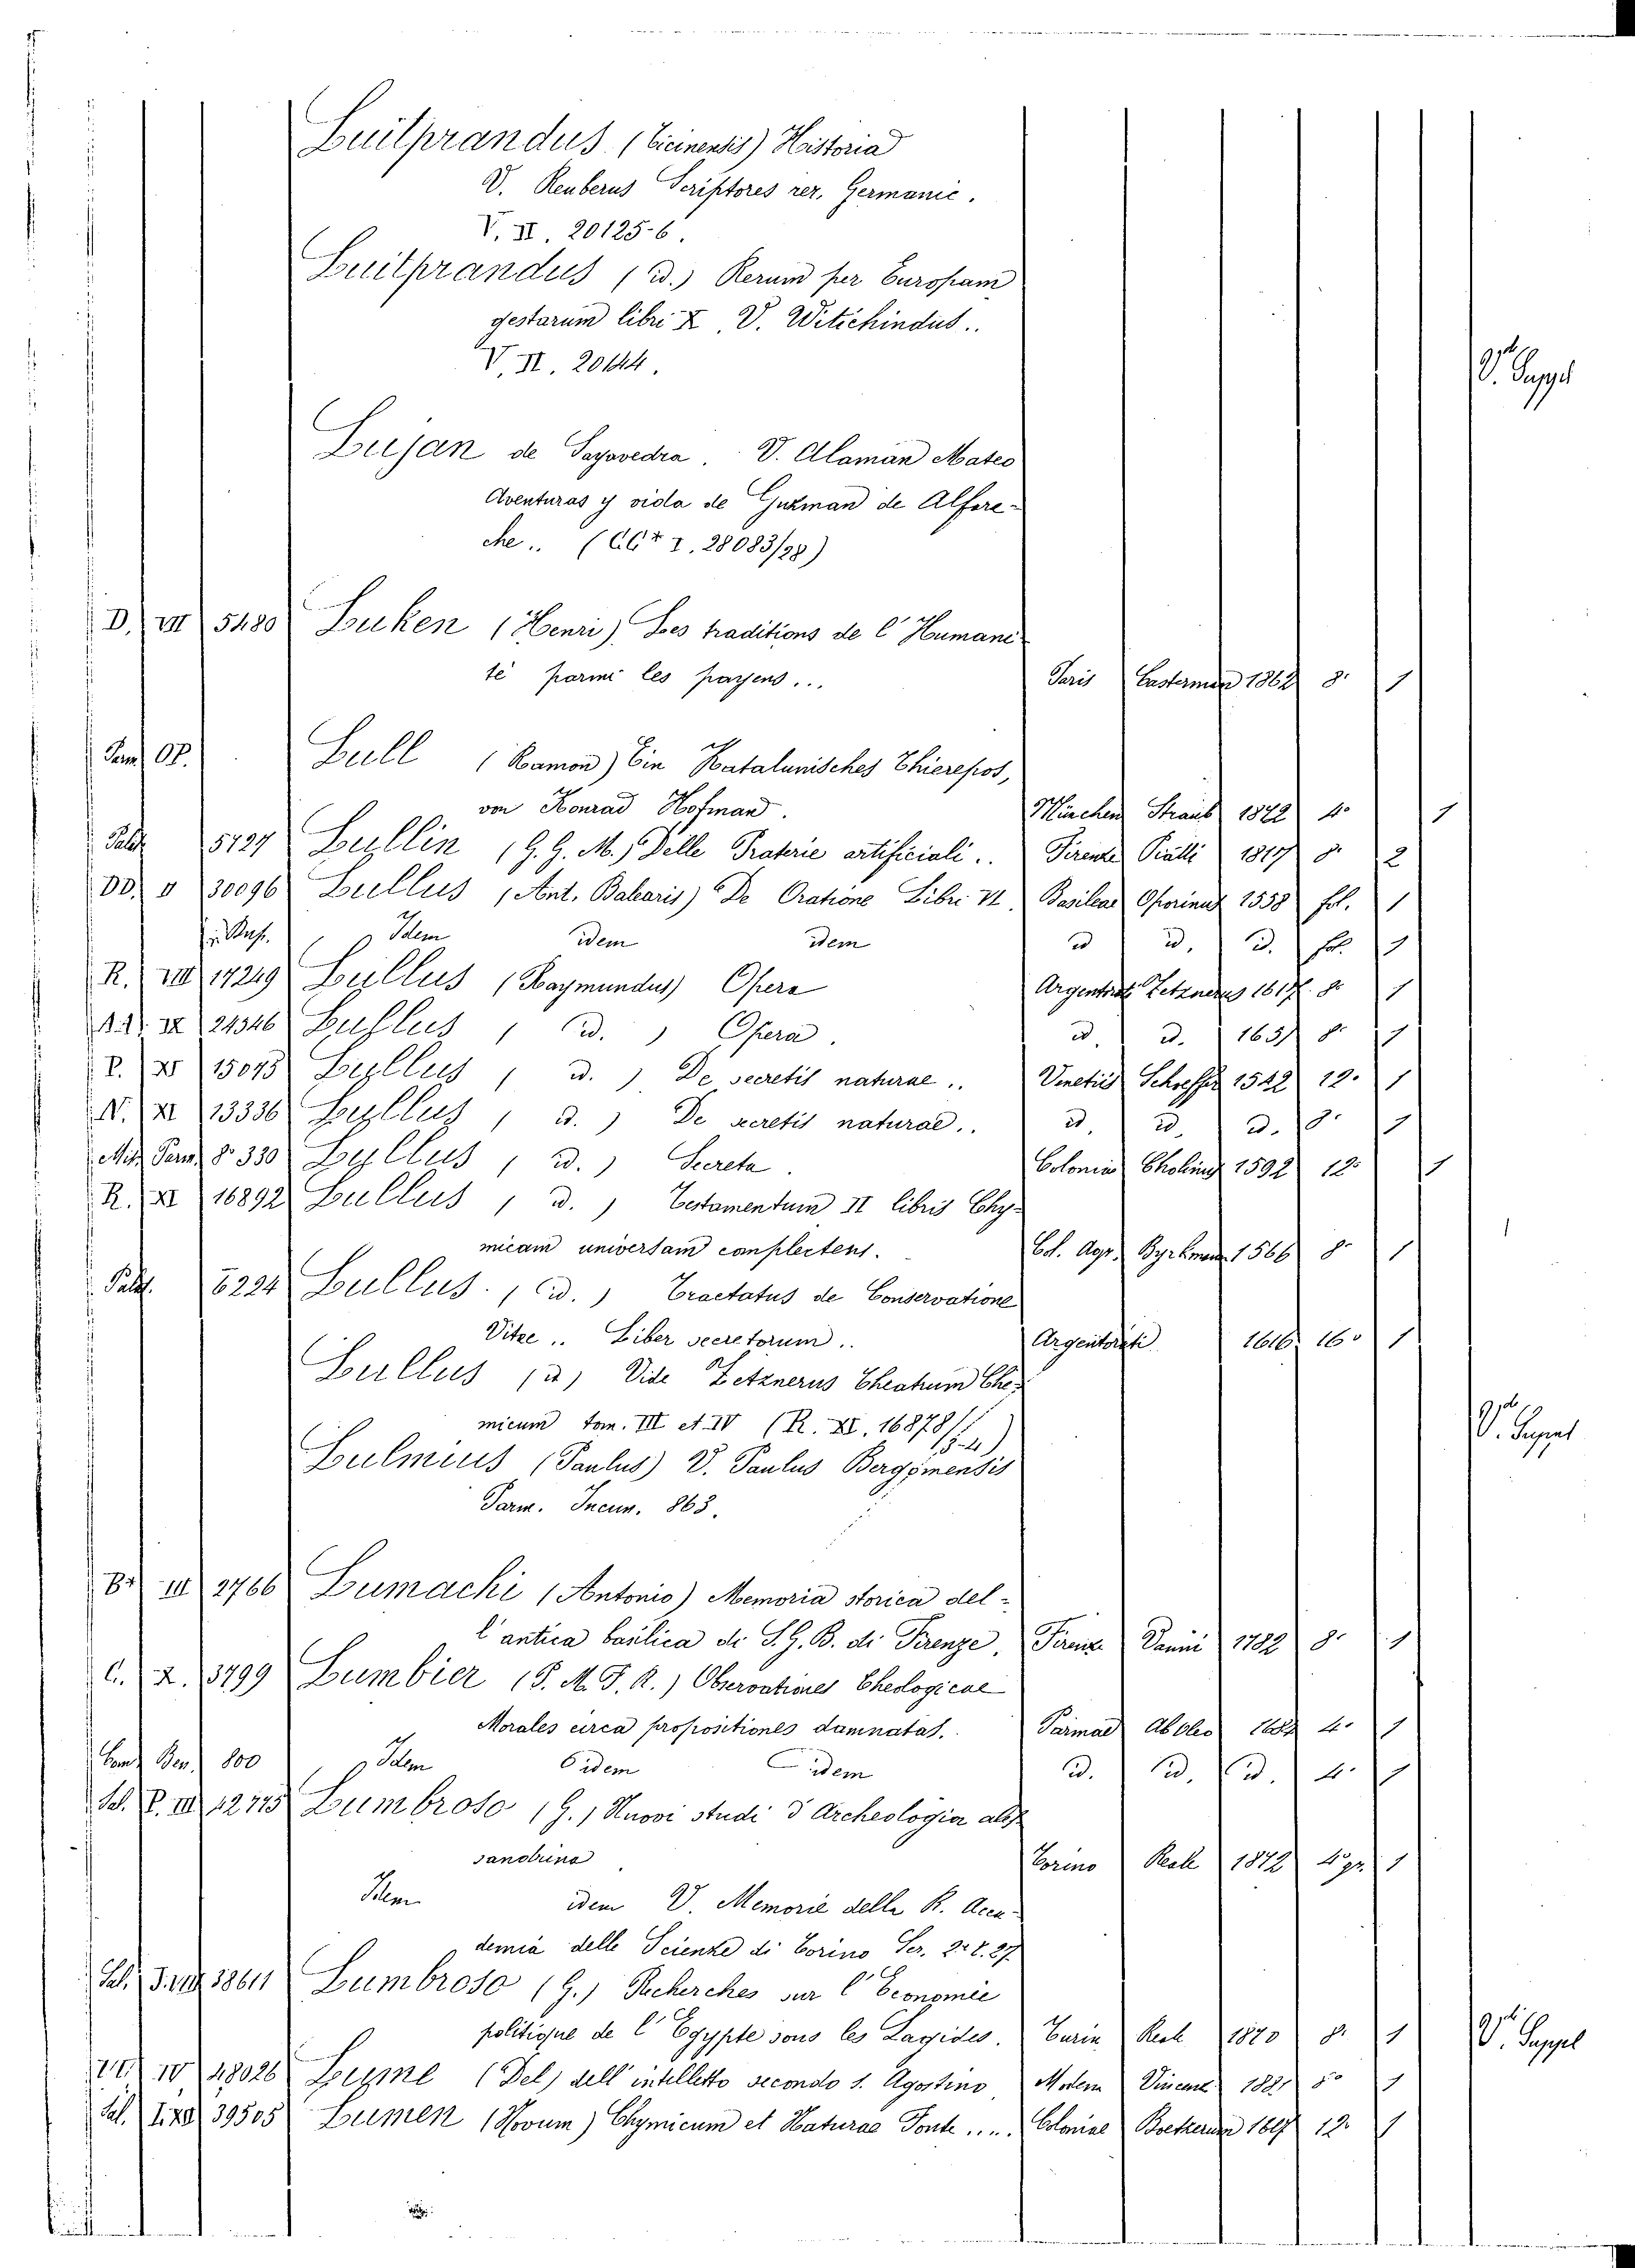 Luitprandus (Ticinensis) Historia
V. Reuberus Scriptores rer. Germanic.
V. II. 20125-6.
Luitprandus (id.) Rerum per Europam
gestarum libri X, V. Witichindus..
V. II. 20144.
V. Suppl
Lujan de Sayavedra. V. Alaman Mateo
Aventuras y vida de Guzman de Alfara-
che.. (CC* I. 28083/98)
D. VII 5480 Luken (Henri) Les traditions de l'Humani-
té parmi les payens... Paris Casterman 1862 8° 1
Parm. OP. Lull (Ramon) Ein Katalanisches Thierepos,
von Konrad Hofman. München Straub 1872 4° 1
Palat. 5727 Lullin (G. G. M.) Delle Praterie artificiali.. Firenze Piatti 1817 8° 2
DD. V 30096 Lullus (Ant. Balearis) De Oratione Libri VI. Basileae Oporinus 1558 fol. 1
Idem idem idem id id. id. fol. 1
R. VIII 17249 Lullus (Raymundus) Opera Argentorati Zetznerus 1617. 8° 1
AA. IX 24346 Lullus (id.) Opera. id. id. 1651 8° 1
P. XV 15075 Lullus (id.) De secretis naturae.. Venetiis Schoeffer 1542 12° 1
N. XI 13336 Lullus (id.) De secretis naturae.. id. id. id. 8° 1
Mis. Parm. 8° 330 Lullus (id.) Secreta. Coloniae Cholinus 1592 12° 1
R. XI 16892 Lullus (id.) Testamentum II libris Chy-
micam universam complectens. Col. Agr. Byrkman 1566 8° 1
Palat. 6224 Lullus. (id.) Tractatus de Conservatione
Vitae.. Liber secretorum.. Argentorati 1616. 16° 1
Lullus (id) Vide Zetznerus Theatrum Che-
micum tom. III et IV (R. XI. 16878/3-4)
V. Suppl
Lulmius (Paulus) V. Paulus Bergomensis
Parm. Incun. 863.
B* III 2766 Lumachi (Antonio) Memoria storica del-
l'antica basilica di S. G. B. di Firenze, Firenze Vanni 1782 8° 1
C. X. 3799 Lumbier (P. M. F. R.) Observationes Theologicae
Morales circa propositiones damnatas.. Parmae Ab Oleo 4° 1
800 Idem idem idem id. id. id. 4° 1
Sal. P. III 12775 Lumbroso (G.) Nuovi studi d'Archeologia ales-
sandrina Torino Reale 1872 4° gr. 1
Idem idem V. Memorie della R. Acca-
demia delle Scienze di Torino Ser. 2ª t. 27.
Sal. 38611 Lumbroso (G.) Recherches sur l'Economie
politique de l'Egypte sous les Lagides. Turin 1870 8° 1
V. Suppl
IV 48026 Lume (Del) dell'intelletto secondo S. Agostino Modena Vincenzi 1881 8° 1
Sal. 39505 Lumen (Novum) Chymicum et Naturae Fonte.... Coloniae 12° 1